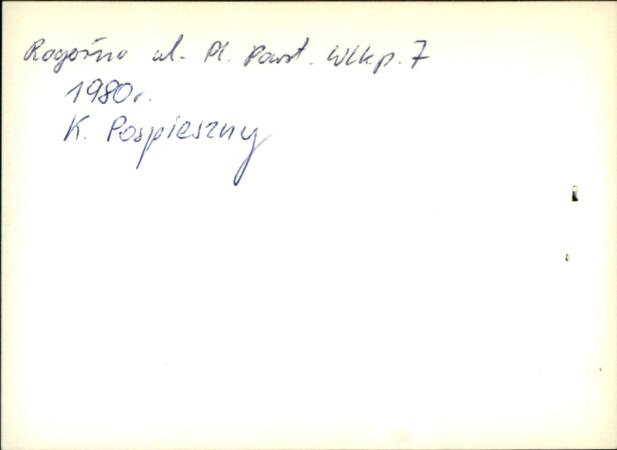 Rogoźno ul. Pl. Powst. Wlkp. 7
1980r.
K. Pospieszny